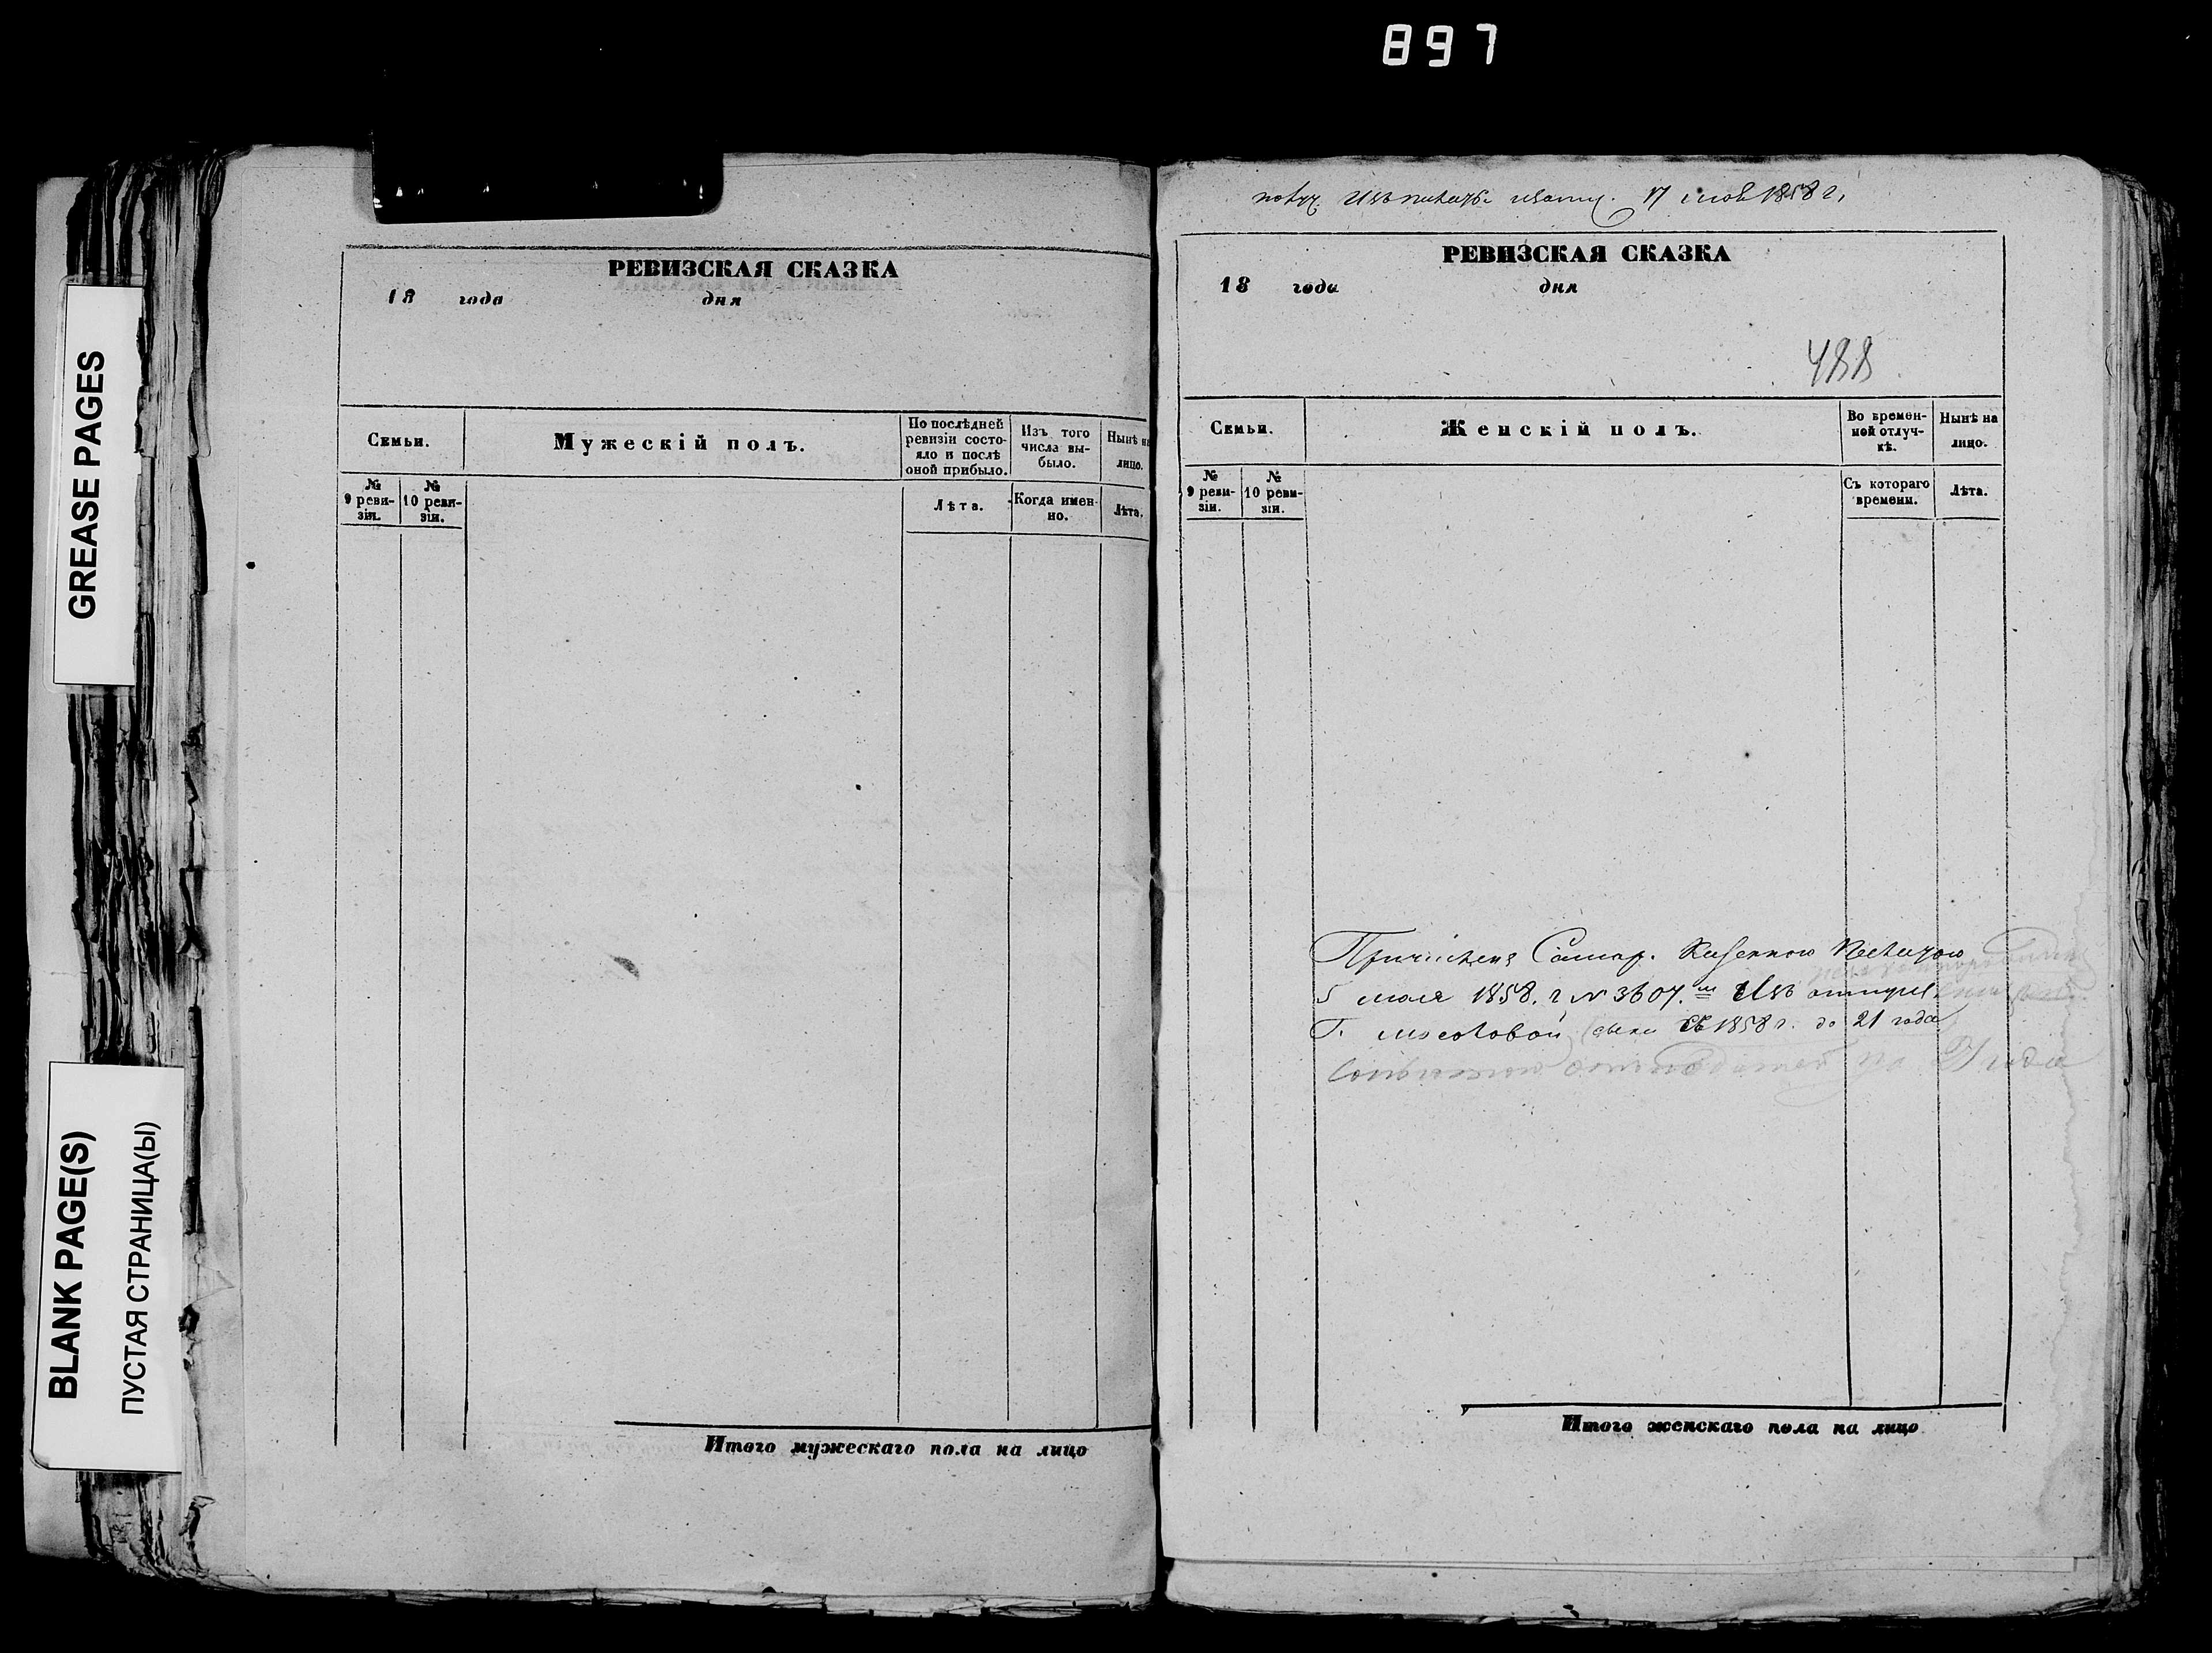 897
GREASE PAGES
BLANK PAGE(S)
ПУСТАЯ СТРАНИЦА(Ы)
РЕВИЗСКАЯ СКАЗКА
18 года дня
Семьи.
Мужескій полъ.
По послѣдней ревизіи состо-
яло и послѣ
оной прибыло.
Изъ того
числа вы-
было.
Нынѣ на
лицо.
№
9 реви-
зіи.
№
10 реви-
зіи.
Лѣта.
Когда имен-
но.
Лѣта.
Итого мужескаго пола на лицо
17 1858 г.
РЕВИЗСКАЯ СКАЗКА
18 года дня
488
Семьи.
Женскій полъ.
Во времен-
ной отлуч-
кѣ.
Нынѣ на
лицо.
№
9 реви-
зіи.
№
10 реви-
зіи.
Съ котораго
времени.
Лѣта.
Причислен Самар. Казенною Палатою
5 июля 1858. г № 3607. Изъ
Г. съ 1858 г. до 21 года
Итого женскаго пола на лицо